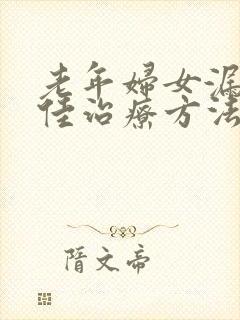 老年婦女漏
佳治療方法
隋文帝